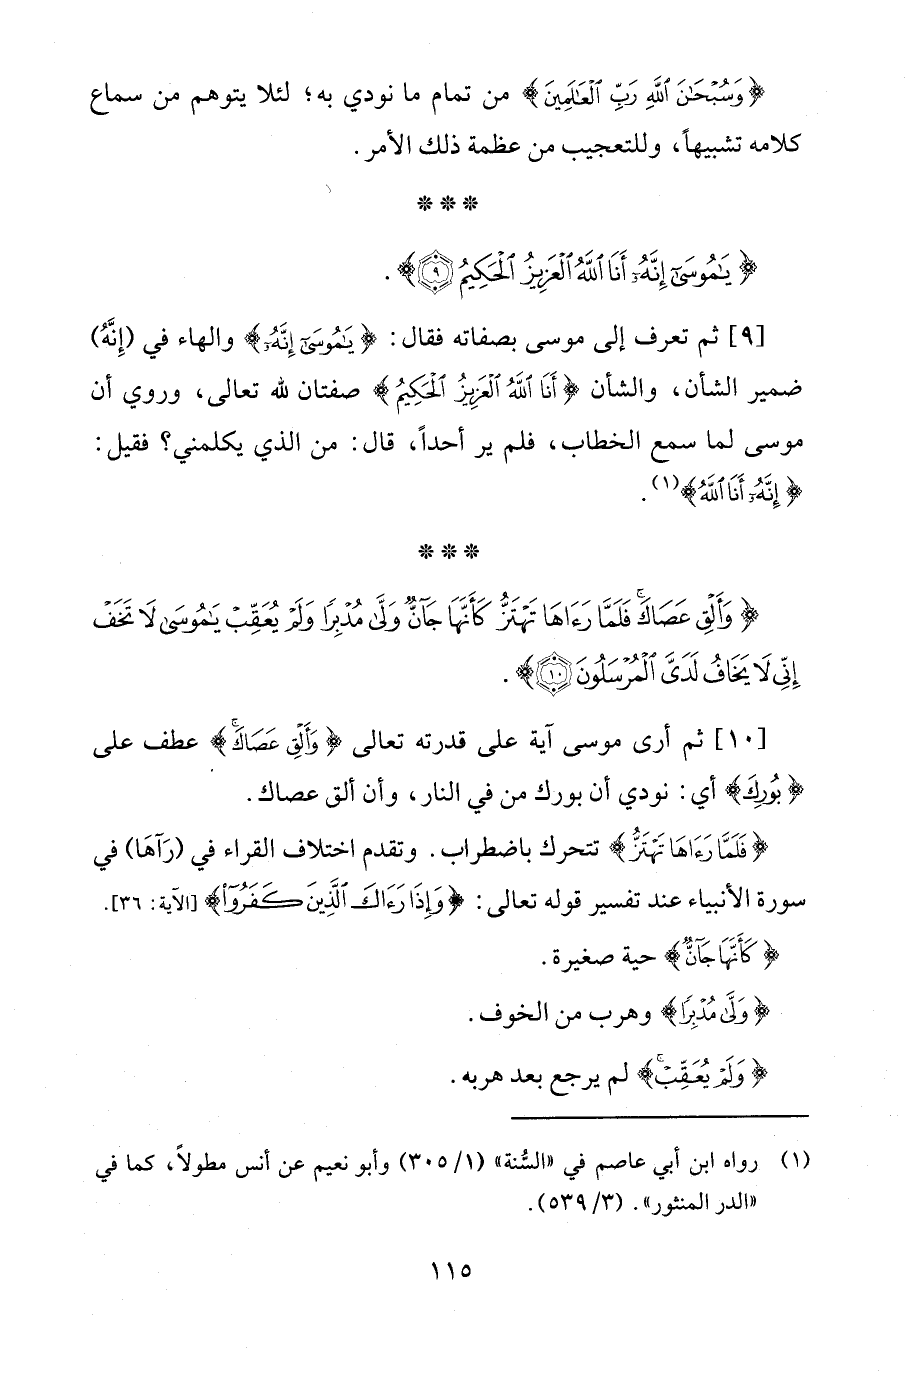 ﴿وَسُبْحَٰنَ ٱللَّهِ رَبِّ ٱلْعَٰلَمِينَ﴾ من تمام ما نودي به؛ لئلا يتوهم من سماع
كلامه تشبيهاً، وللتعجيب من عظمة ذلك الأمر.
***
﴿يَٰمُوسَىٰٓ إِنَّهُۥٓ أَنَا ٱللَّهُ ٱلْعَزِيزُ ٱلْحَكِيمُ ٩﴾.
[٩] ثم تعرف إلى موسى بصفاته فقال: ﴿يَٰمُوسَىٰٓ إِنَّهُۥٓ﴾ والهاء في (إِنَّهُ)
ضمير الشأن، والشأن ﴿أَنَا ٱللَّهُ ٱلْعَزِيزُ ٱلْحَكِيمُ﴾ صفتان لله تعالى، وروي أن
موسى لما سمع الخطاب، فلم ير أحداً، قال: من الذي يكلمني؟ فقيل:
﴿إِنَّهُۥٓ أَنَا ٱللَّهُ﴾(١).
***
﴿وَأَلْقِ عَصَاكَ ۚ فَلَمَّا رَءَاهَا تَهْتَزُّ كَأَنَّهَا جَآنٌّ وَلَّىٰ مُدْبِرًا وَلَمْ يُعَقِّبْ يَٰمُوسَىٰ لَا تَخَفْ
إِنِّي لَا يَخَافُ لَدَيَّ ٱلْمُرْسَلُونَ ١٠﴾.
[١٠] ثم أرى موسى آية على قدرته تعالى ﴿وَأَلْقِ عَصَاكَ ۚ﴾ عطف على
﴿بُورِكَ﴾ أي: نودي أن بورك من في النار، وأن ألق عصاك.
﴿فَلَمَّا رَءَاهَا تَهْتَزُّ﴾ تتحرك باضطراب. وتقدم اختلاف القراء في (رَآهَا) في
سورة الأنبياء عند تفسير قوله تعالى: ﴿وَإِذَا رَءَاكَ ٱلَّذِينَ كَفَرُوٓا۟﴾ [الآية: ٣٦].
﴿كَأَنَّهَا جَآنٌّ﴾ حية صغيرة.
﴿وَلَّىٰ مُدْبِرًا﴾ وهرب من الخوف.
﴿وَلَمْ يُعَقِّبْ ۚ﴾ لم يرجع بعد هربه.
(١) رواه ابن أبي عاصم في «السُّنة» (١/ ٣٠٥) وأبو نعيم عن أنس مطولاً، كما في
«الدر المنثور». (٣/ ٥٣٩).
١١٥